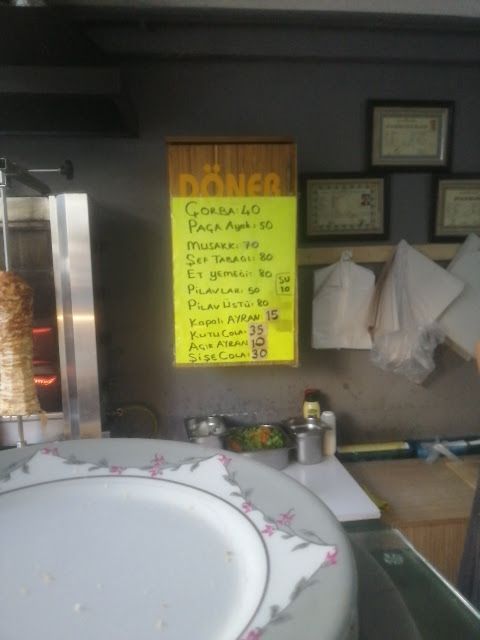 DÖNER
ÇORBA: 40
PAÇA Ayak: 50
MUSAKK: 70
ŞEF TABAĞI: 80
ET YEMEĞİ: 80
PİLAVLAR: 50
SU 10
PİLAV ÜSTÜ: 80
Kapalı AYRAN 15
KUTU COLA: 35
AÇIK AYRAN 10
ŞİŞE COLA: 30